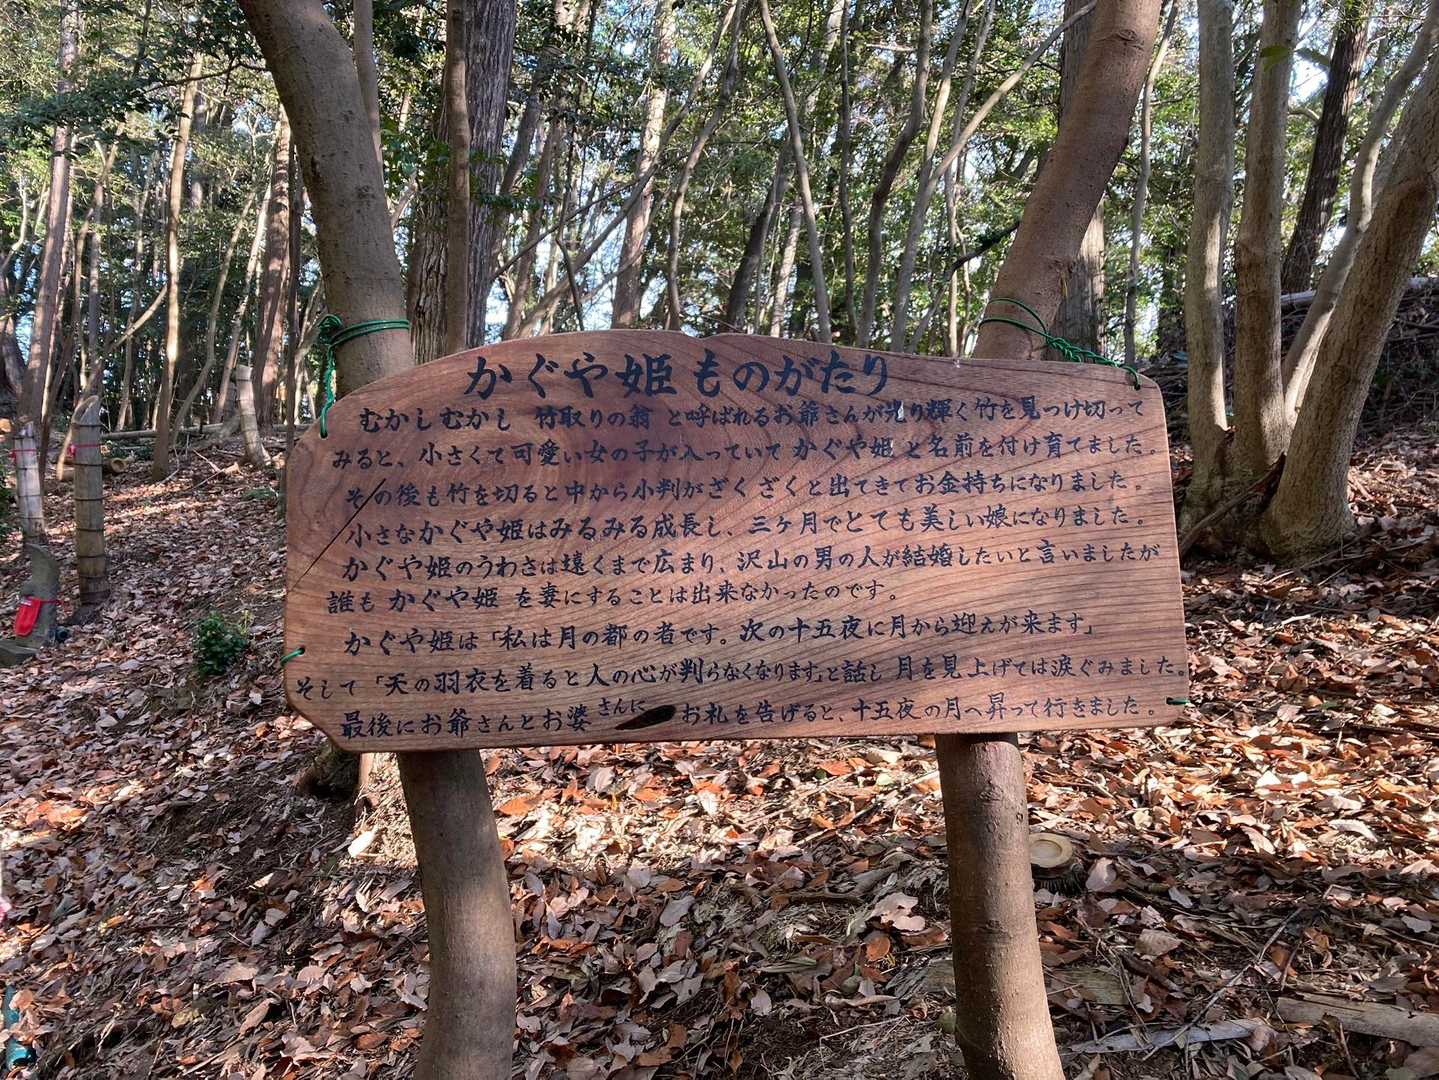 かぐや姫ものがたり
むかしむかし 竹取りの翁 と呼ばれるお爺さんが光り輝く竹を見つけ切って
みると、小さくて可愛い女の子が入っていて かぐや姫 と名前を付け育てました。
その後も竹を切ると中から小判がざくざくと出てきてお金持ちになりました。
小さなかぐや姫はみるみる成長し、三ヶ月でとても美しい娘になりました。
かぐや姫のうわさは遠くまで広まり、沢山の男の人が結婚したいと言いましたが
誰も かぐや姫 を妻にすることは出来なかったのです。
かぐや姫は「私は月の都の者です。次の十五夜に月から迎えが来ます」
そして「天の羽衣を着ると人の心が判らなくなります」と話し 月を見上げては涙ぐみました。
最後にお爺さんとお婆さんに お礼を告げると、十五夜の月へ昇って行きました。